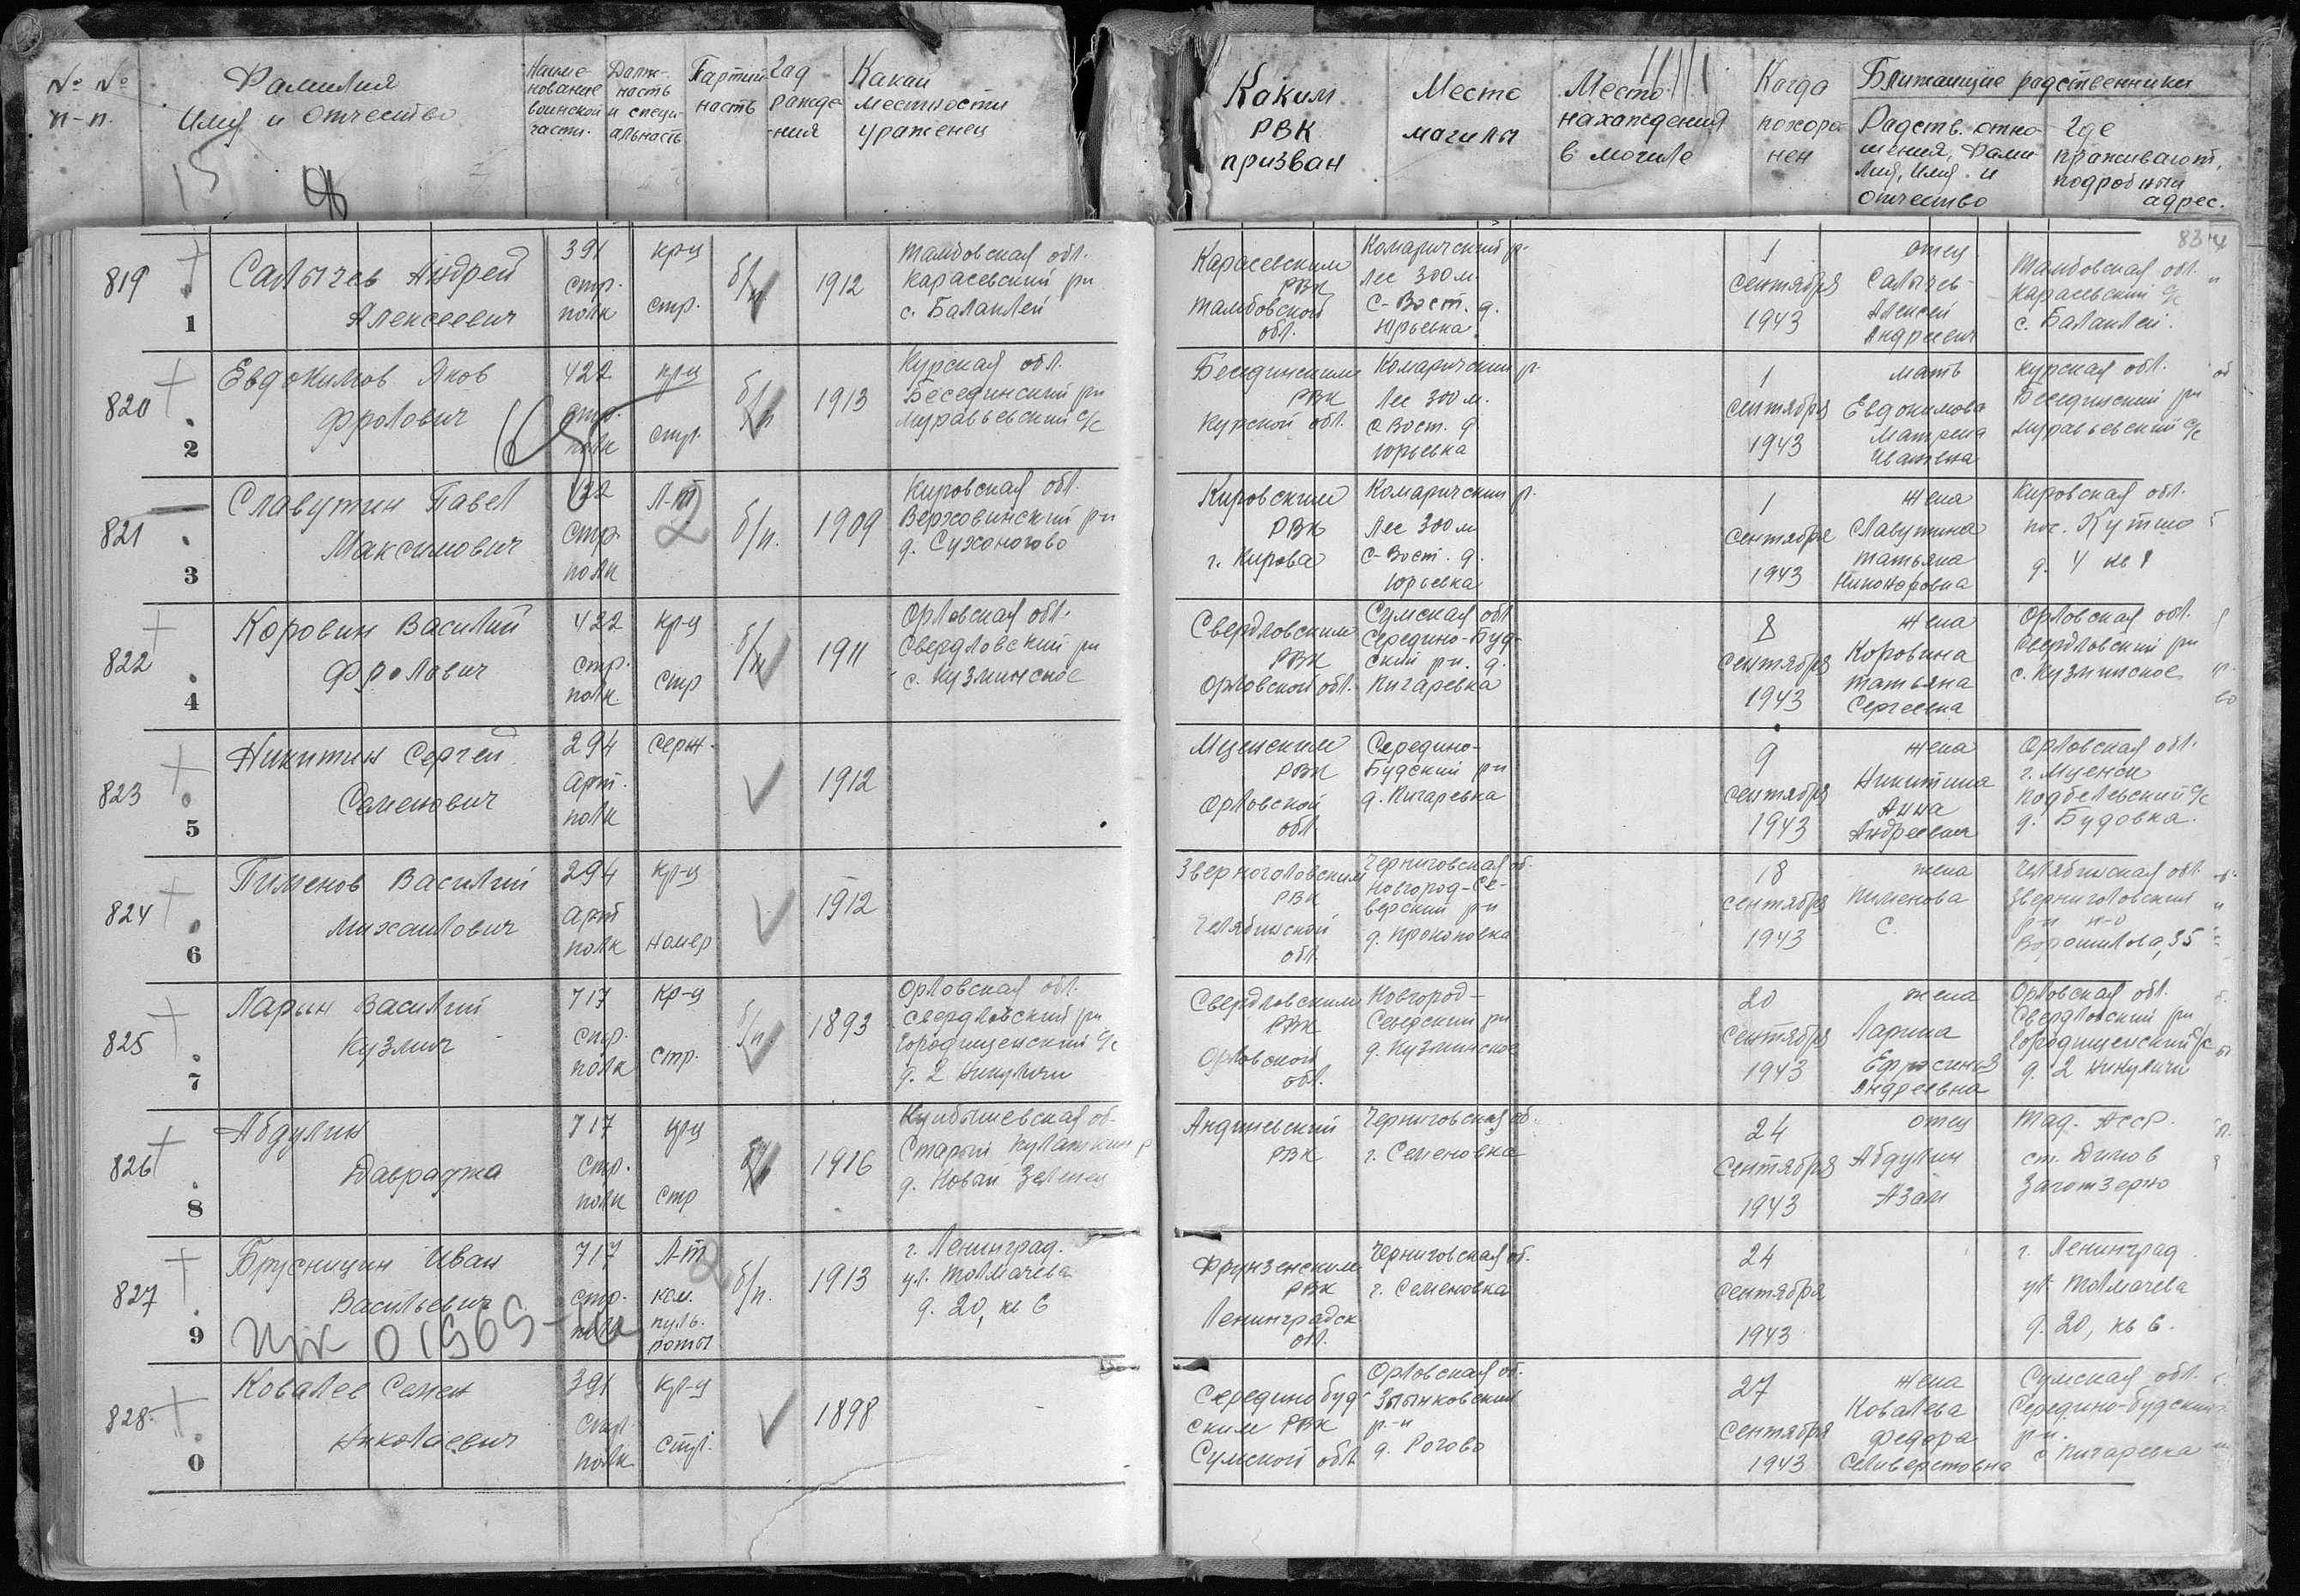 № № п-п.
Фамилия Имя и отчество
Наиме-нование воинской части.
Долж-ность и специ-альность
Партий-ность
Год рожде-ния
Какой местности уроженец
Каким РВК призван
Место могилы
Место нахождения в могиле
Когда похоро-нен
Ближайшие родственники
Родств. отно-шения, Фами-лия, Имя и отчество
Где проживают, подробный адрес.
834
819
1
Салычев Андрей
Алексеевич
391
стр.
полк
кр-ц
стр.
б/п.
1912
Тамбовская обл.
Карасевский рн
с. Балаклей
Карасевским
РВК
Тамбовской
обл.
Комаричский р-
Лес 300 м.
С-Вост. д.
Юрьевка
1
сентября
1943
отец
Салычев
Алексей
Андреевич
Тамбовская обл.
Карасевский с/с
с. Балаклей.
820
2
Евдокимов Яков
Фролович
422
стр.
полк
кр-ц
стр.
б/п
1913
Курская обл.
Бесединский рн
Муравьевский с/с
Бесединским
РВК
Курской обл.
Комаричский р-
Лес 300 м.
С Вост. д.
Юрьевка
1
сентября
1943
мать
Евдокимова
Матрена
Ивановна
Курская обл.
Бесединский рн
Муравьевский с/с
821
3
Славутин Павел
Максимович
стр
полк
Л-т
2
б/п.
1909
Кировская обл.
Верховинский р-н
д. Сухоногово
Кировским
РВК
г. Кирова
Комаричский р.
Лес 300 м
С-Вост. д.
Юрьевка
1
сентября
1943
жена
Славутина
Татьяна
Никоноровна
Кировская обл.
пос.
д. 4 кв 1
822
4
Коровин Василий
Фролович
422
стр.
полк
кр-ц
стр
б/п
1911
Орловская обл.
Свердловский рн
с. Кузминское
Свердловским
РВК
Орловской обл.
Сумская обл
Середино-Буд-
ский рн. д.
Пигаревка
8
сентября
1943
жена
Коровина
Татьяна
Сергеевна
Орловская обл.
Свердловский рн
с. Кузминское
823
5
Никитин Сергей
Семенович
294
Арт.
полк
серж.
1912
Мценским
РВК
Орловской
обл.
Середино-
Будский р-н
д. Пигаревка
9
сентября
1943
жена
Никитина
Анна
Андреевна
Орловская обл.
г. Мценск
Подбелевский с/с
д. Будовка.
824
6
Пименов Василий
Михаилович
294
Арт
полк
кр-ц
номер
1912
Зверноголовским
РВК
Челябинской
обл.
Черниговская об.
Новгород-Се-
верский р-н
д. Прокоповка
18
сентября
1943
жена
Пименова
С.
Челябинская обл.
Зверниголовский
р-н п-о
Ворошилова, 35
825
7
Ларин Василий
Кузмич
717
стр.
полк
кр-ц
стр.
б/п.
1893
Орловская обл.
Свердловский рн
Городищенский с/с
д. 2 Никуличи
Свердловским
РВК
Орловской
обл.
Новгород-
Северский рн
д. Кузминское
20
сентября
1943
жена
Ларина
Ефросинья
Андреевна
Орловская обл.
Свердловский рн
Городищенский с/с
д. 2 Никуличи
826
8
Абдулин
Давраджа
717
стр.
полк
кр-ц
стр
б/п
1916
Куйбышевская об-
Старый Кулаткин р
д. Новый Зеленец
Андижевский
РВК
Черниговская об.
г. Семеновка
24
сентября
1943
отец
Абдулин
Азам
Тад. АССР.
ст.
Заготзерно
827
9
Брусницин Иван
Васильевич
717
стр.
полк
Л-т
ком.
пуль.
роты
2
б/п.
1913
г. Ленинград.
ул. Толмачева
д. 20, кв 6
Фрунзенским
РВК
Ленинградск
обл.
Черниговская об.
г. Семеновка
24
сентября
1943
г. Ленинград
ул. Толмачева
д. 20, кв 6.
828
0
Ковалев Семен
Николаевич
391
стр
полк
кр-ц
стр.
1898
Серединобуд-
ским РВК
Сумской обл.
Орловская об.
Злынковский
р-н
д. Рогово
27
сентября
1943
жена
Ковалева
Федора
Селиверстовна
Сумская обл.
Середино-будский
р-н.
с Пигаревка